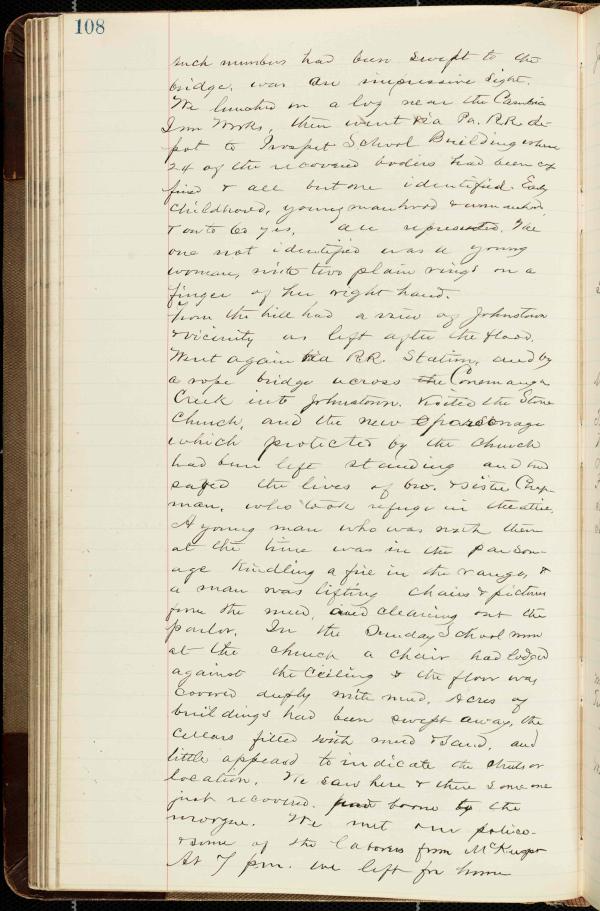 108
such numbers had been swept to the
bridge, was an impressive sight.
We lunched on a log near the Cambria
Iron Works, then went via Pa. R.R. de-
pot to Prospect School Building where
24 of the recovered bodies had been ex
posed & all but one identified. Early
childhood, young manhood & womanhood
& on to 60 yrs, are represented. The
one not identified was a young
woman, with two plain rings on a
finger of her right hand.
From the hill had a view of Johnstown
& vicinity as left after the flood.
Went again via R.R. Station, and by
a rope bridge across the Conemaugh
Creek into Johnstown. Visited the Stone
Church, and the new parsonage
which protected by the church
had been left standing and had
saved the lives of bro. & sister Chap-
man, who took refuge in the attic.
A young man who was with them
at the time was in the parson-
age kindling a fire in the range, &
a man was lifting chairs & pictures
from the mud, and cleaning out the
parlor. In the Sunday School room
at the church a chair had lodged
against the ceiling & the floor was
covered deeply with mud. Acres of
buildings had been swept away, the
cellars filled with mud & sand, and
little appeared to indicate the streets or
location. We saw here & there some one
just recovered borne to the
morgue. We met our police-
& some of the laborers from McKeesport
At 7 pm. we left for home